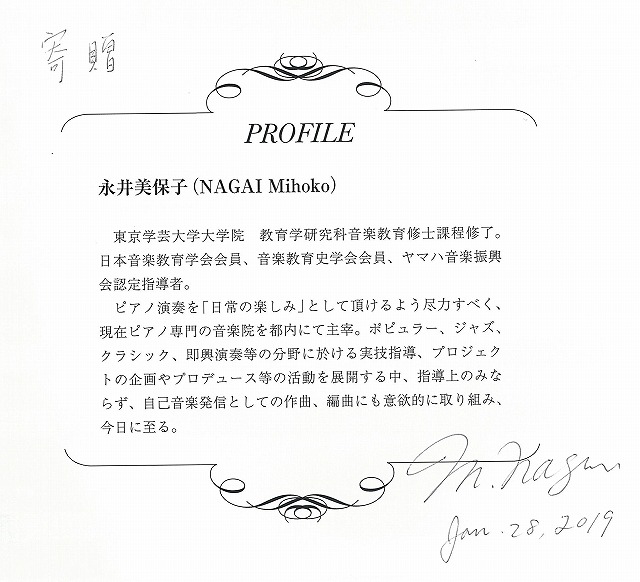 寄贈
PROFILE
永井美保子(NAGAI Mihoko)
東京学芸大学大学院 教育学研究科音楽教育修士課程修了。
日本音楽教育学会会員、音楽教育史学会会員、ヤマハ音楽振興
会認定指導者。
ピアノ演奏を「日常の楽しみ」として頂けるよう尽力すべく、
現在ピアノ専門の音楽院を都内にて主宰。ポピュラー、ジャズ、
クラシック、即興演奏等の分野に於ける実技指導、プロジェク
トの企画やプロデュース等の活動を展開する中、指導上のみな
らず、自己音楽発信としての作曲、編曲にも意欲的に取り組み、
今日に至る。
M. Nagai
Jan. 28, 2019